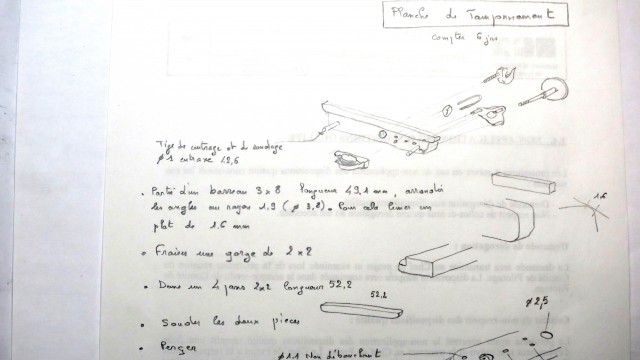 Planche de Tamponnement
compter 6 jrs
Tige de centrage et de soudage
ø 1 entraxe 42,6
• Partir d'un barreau 3×8 longueur 49.1 mm, arrondir
les angles au rayon 1.9 (ø 3,8). Pour cela limer un
plat de 1.6 mm
1.6
• Fraiser une gorge de 2×2
• Dans un 4 pans 2×2 longueur 52,2
52,2
ø 2,5
• Souder les deux pièces
• Percer
ø 1.1 Non débouchant